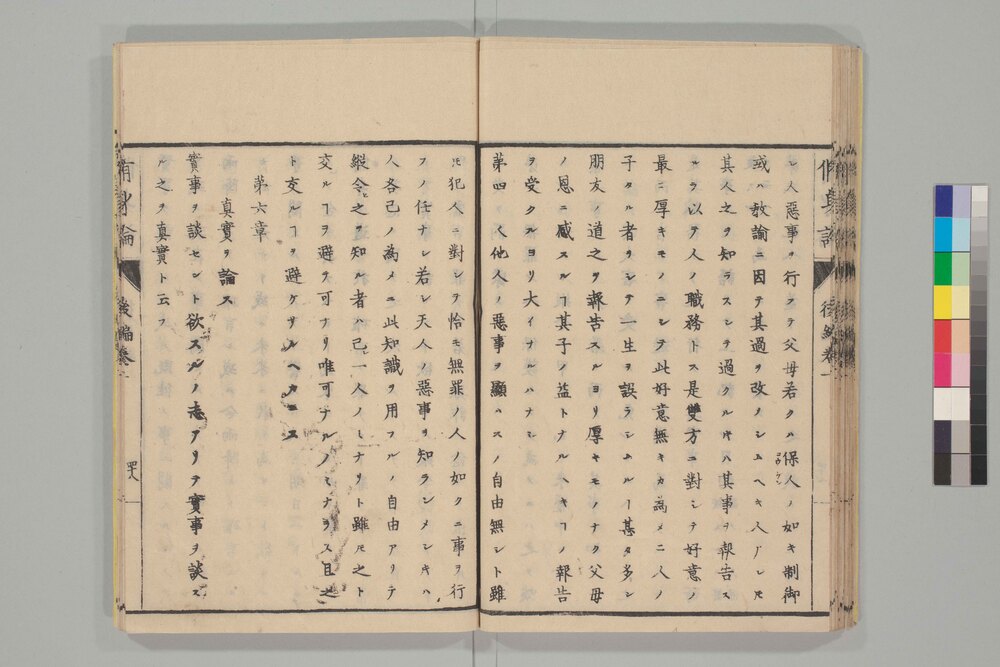 シ人惡事ヲ行クヲ父母若クハ保人ノ如キ制御
或ハ教諭ニ因テ其過ヲ改メシユヘキ人アレ𪜈
其人之ヲ知ラスシテ過クル𪜈ハ其事ヲ報告ス
ルヲ以テ人ノ職務トス是雙方ニ對シテ好意ノ
最ニ厚キモノニシテ此好意無キカ爲メニ人ノ
子タル者ヲシテ一生ヲ誤ラシムルヿ甚タ多シ
朋友ノ道之ヲ報告スルヨリ厚キモノナク父母
ノ恩ニ感スルヿ其子ノ益トナルヘキヿノ報告
ヲ受クルヨリ大イナルハナシ
第四 人他人ノ惡事ヲ顯ハスノ自由無シト雖
𪜈犯人ニ對シヲ恰モ無罪ノ人ノ如クニ事ヲ行
フノ任ナシ若シ天人ノ惡事ヲ知ランメシキハ
人各己ノ爲メニ此知識ヲ用フルノ自由アリテ
縱令之ヲ知ル者ハ己一人ノミナリト雖𪜈之ト
交ルヿヲ避テ可ナリ唯可ナルノミナラス且之
ト交ルヿヲ避ケサルヘカラス
第六章
眞實ヲ論ス
實事ヲ談セント欲スルノ志アリテ實事ヲ談ス
ルノヲ眞實ト云フ
脩身論
後編卷一
四八